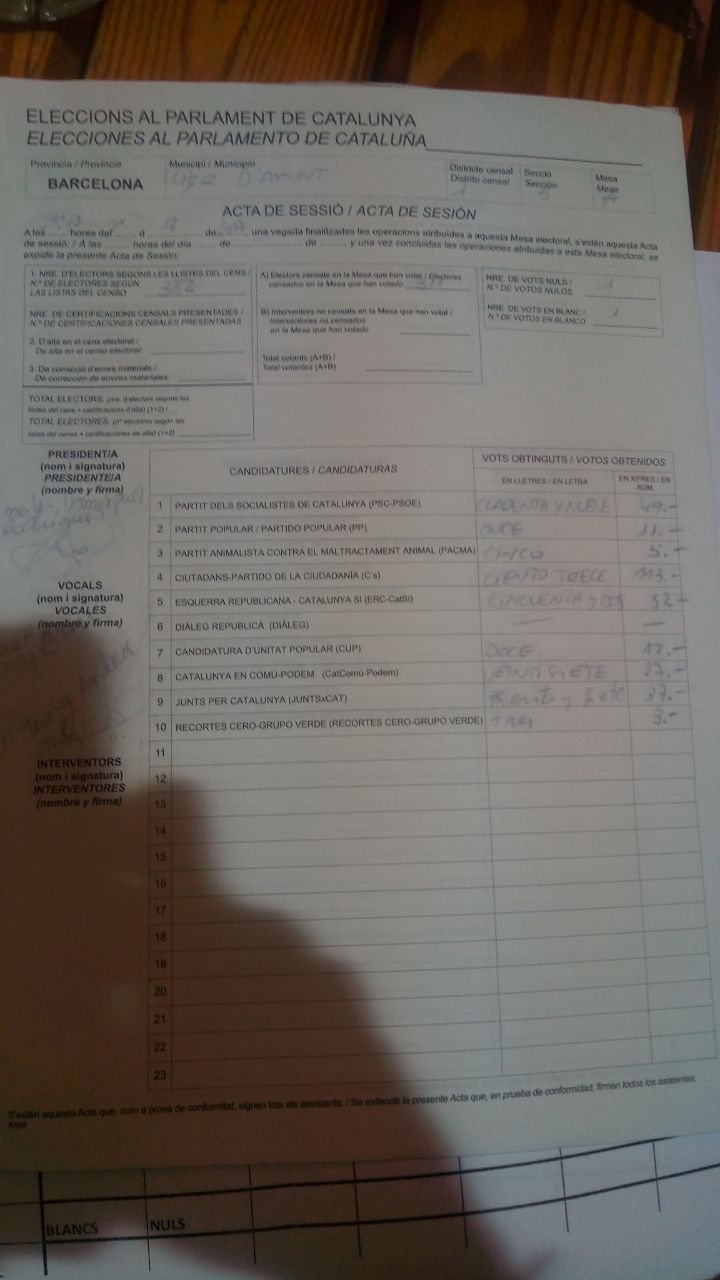 ELECCIONS AL PARLAMENT DE CATALUNYA
ELECCIONES AL PARLAMENTO DE CATALUÑA
Provincia / Provincia
Municipi / Municipio
Districte censal
Distrito censal
Secció
Sección
Mesa
Mesa
BARCELONA
D'AMUNT
ACTA DE SESSIÓ / ACTA DE SESIÓN
A les ........ hores del ........ d ........ de ........, una vegada finalitzades les operacions atribuïdes a aquesta Mesa electoral, s'estén aquesta Acta
de sessió: / A las ........ horas del día ........ de ........ de ........, y una vez concluidas las operaciones atribuidas a esta Mesa electoral, se
expide la presente Acta de Sesión:
1. NRE. D'ELECTORS SEGONS LES LLISTES DEL CENS /
N.º DE ELECTORES SEGÚN
LAS LISTAS DEL CENSO 382
NRE. DE CERTIFICACIONS CENSALS PRESENTADES /
N.º DE CERTIFICACIONES CENSALES PRESENTADAS
2. D'alta en el cens electoral /
De alta en el censo electoral:
3. De correcció d'errors materials /
De corrección de errores materiales:
TOTAL ELECTORS: (nre. d'electors segons les
llistes del cens + certificacions d'alta) (1+2) /
TOTAL ELECTORES: (nº electores según las
listas del censo + certificaciones de alta) (1+2)
A) Electors censats en la Mesa que han votat / Electores
censados en la Mesa que han votado
B) Interventors no censats en la Mesa que han votat /
Interventores no censados
en la Mesa que han votado
Total votants (A+B) /
Total votantes (A+B)
NRE. DE VOTS NULS /
N.º DE VOTOS NULOS 1
NRE. DE VOTS EN BLANC /
N.º DE VOTOS EN BLANCO 1
PRESIDENT/A
(nom i signatura)
PRESIDENTE/A
(nombre y firma)
VOCALS
(nom i signatura)
VOCALES
(nombre y firma)
INTERVENTORS
(nom i signatura)
INTERVENTORES
(nombre y firma)
CANDIDATURES / CANDIDATURAS
VOTS OBTINGUTS / VOTOS OBTENIDOS
EN LLETRES / EN LETRA
EN XIFRES / EN NÚM.
1 PARTIT DELS SOCIALISTES DE CATALUNYA (PSC-PSOE) 49.-
2 PARTIT POPULAR / PARTIDO POPULAR (PP) ONCE 11.-
3 PARTIT ANIMALISTA CONTRA EL MALTRACTAMENT ANIMAL (PACMA) CINCO 5.-
4 CIUTADANS-PARTIDO DE LA CIUDADANÍA (C's) CIENTO TRECE 113.-
5 ESQUERRA REPUBLICANA - CATALUNYA SI (ERC-CatSI) CINCUENTA Y DOS 52-
6 DIÀLEG REPUBLICÀ (DIÀLEG) — —
7 CANDIDATURA D'UNITAT POPULAR (CUP) DOCE 12.-
8 CATALUNYA EN COMÚ-PODEM (CatComú-Podem) VEINTISIETE 27.-
9 JUNTS PER CATALUNYA (JUNTSxCAT) Treinta y siete 37.-
10 RECORTES CERO-GRUPO VERDE (RECORTES CERO-GRUPO VERDE) TRES 3.-
11
12
13
14
15
16
17
18
19
20
21
22
23
S'estén aquesta Acta que, com a prova de conformitat, signen tots els assistents. / Se extiende la presente Acta que, en prueba de conformidad, firman todos los asistentes.
ASM
BLANCS
NULS